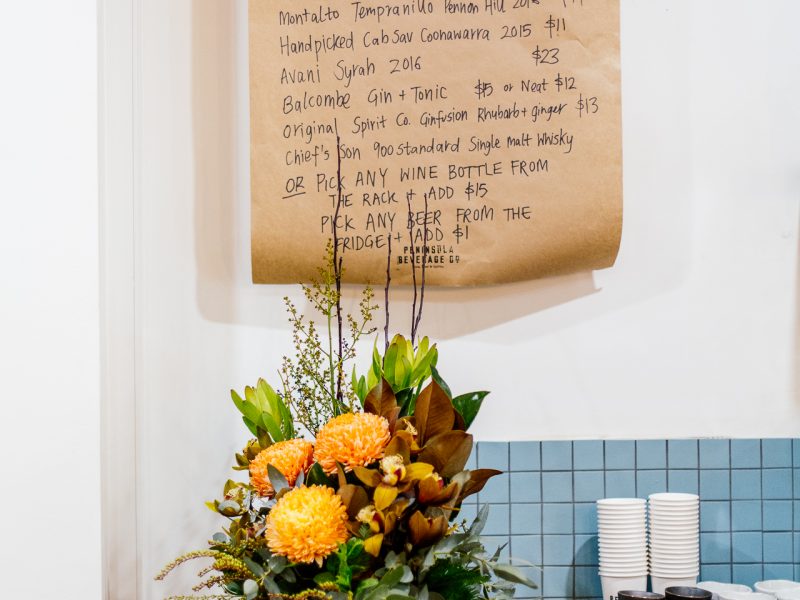 Montalto Tempranillo Pennon Hill 2016
Handpicked Cab Sav Coonawarra 2015 $11
Avani Syrah 2016 $23
Balcombe Gin + Tonic $15 or Neat $12
Original Spirit Co. Ginfusion Rhubarb + ginger $13
Chief's Son 900 Standard Single Malt Whisky
OR PICK ANY WINE BOTTLE FROM
THE RACK + ADD $15
PICK ANY BEER FROM THE
FRIDGE + ADD $1
PENINSULA
BEVERAGE CO